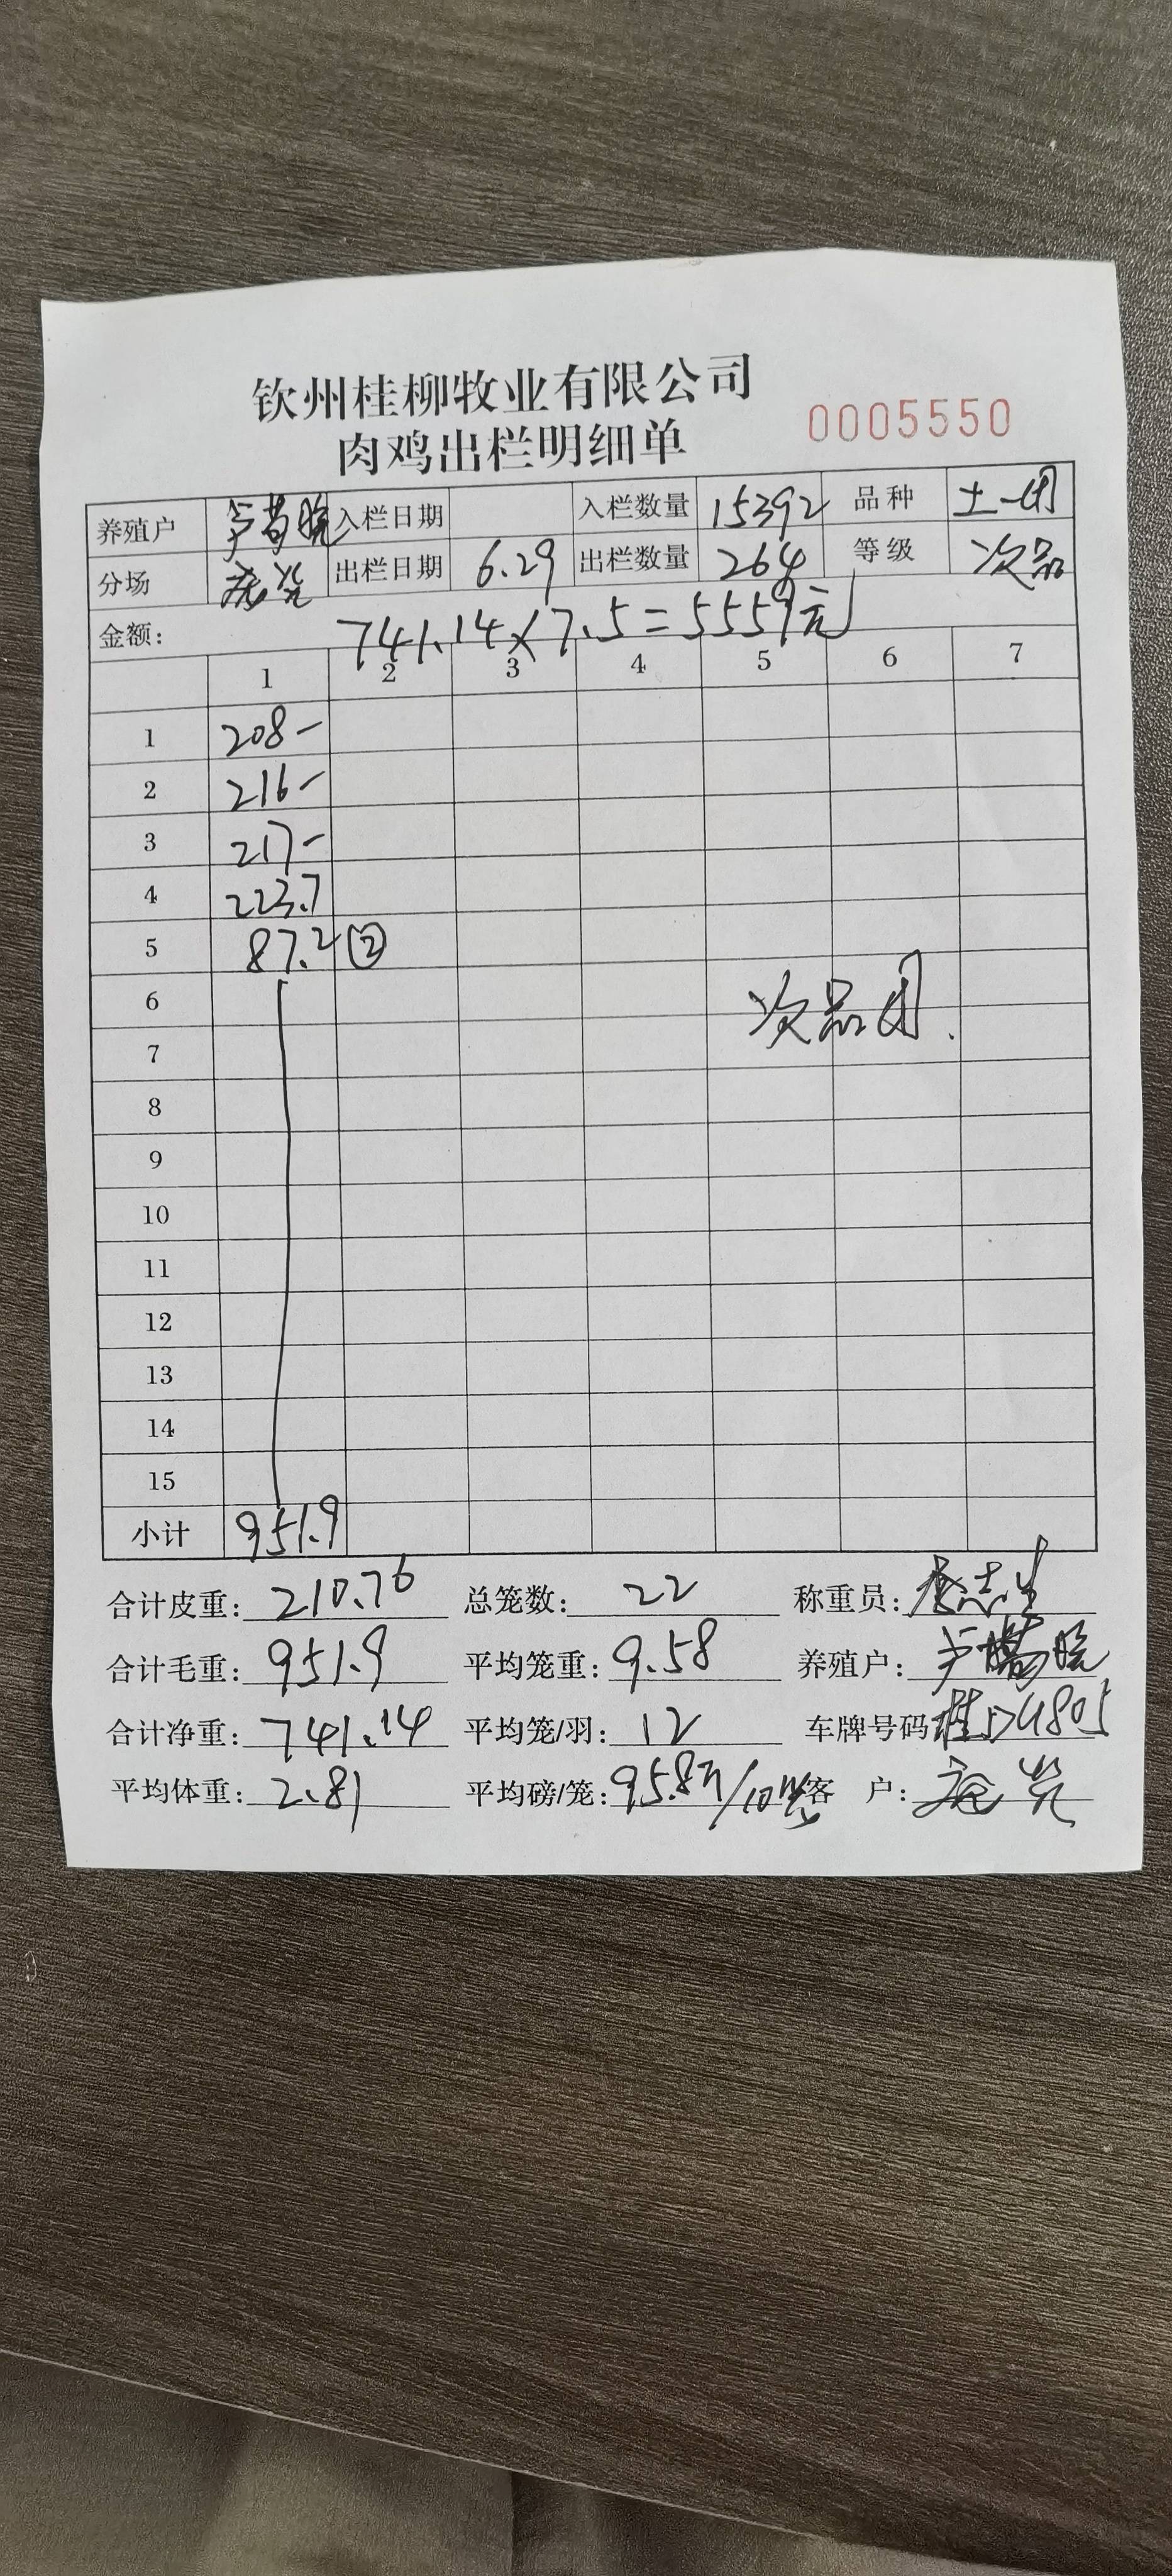 钦州桂柳牧业有限公司
肉鸡出栏明细单 0005550
养殖户 入栏日期 入栏数量 15392 品种 土一
分场 出栏日期 6.29 出栏数量 264 等级 次品
金额: 741.14×7.5=5559元
1 2 3 4 5 6 7
1 208-
2 216-
3 217-
4 223.7
5 87.2 ②
6 次品
7
8
9
10
11
12
13
14
15
小计 951.9
合计皮重: 210.76 总笼数: 22 称重员: 志
合计毛重: 951.9 平均笼重: 9.58 养殖户:
合计净重: 741.14 平均笼/羽: 12 车牌号码 桂D4805
平均体重: 2.81 平均磅/笼: 95.8斤/10 客 户: